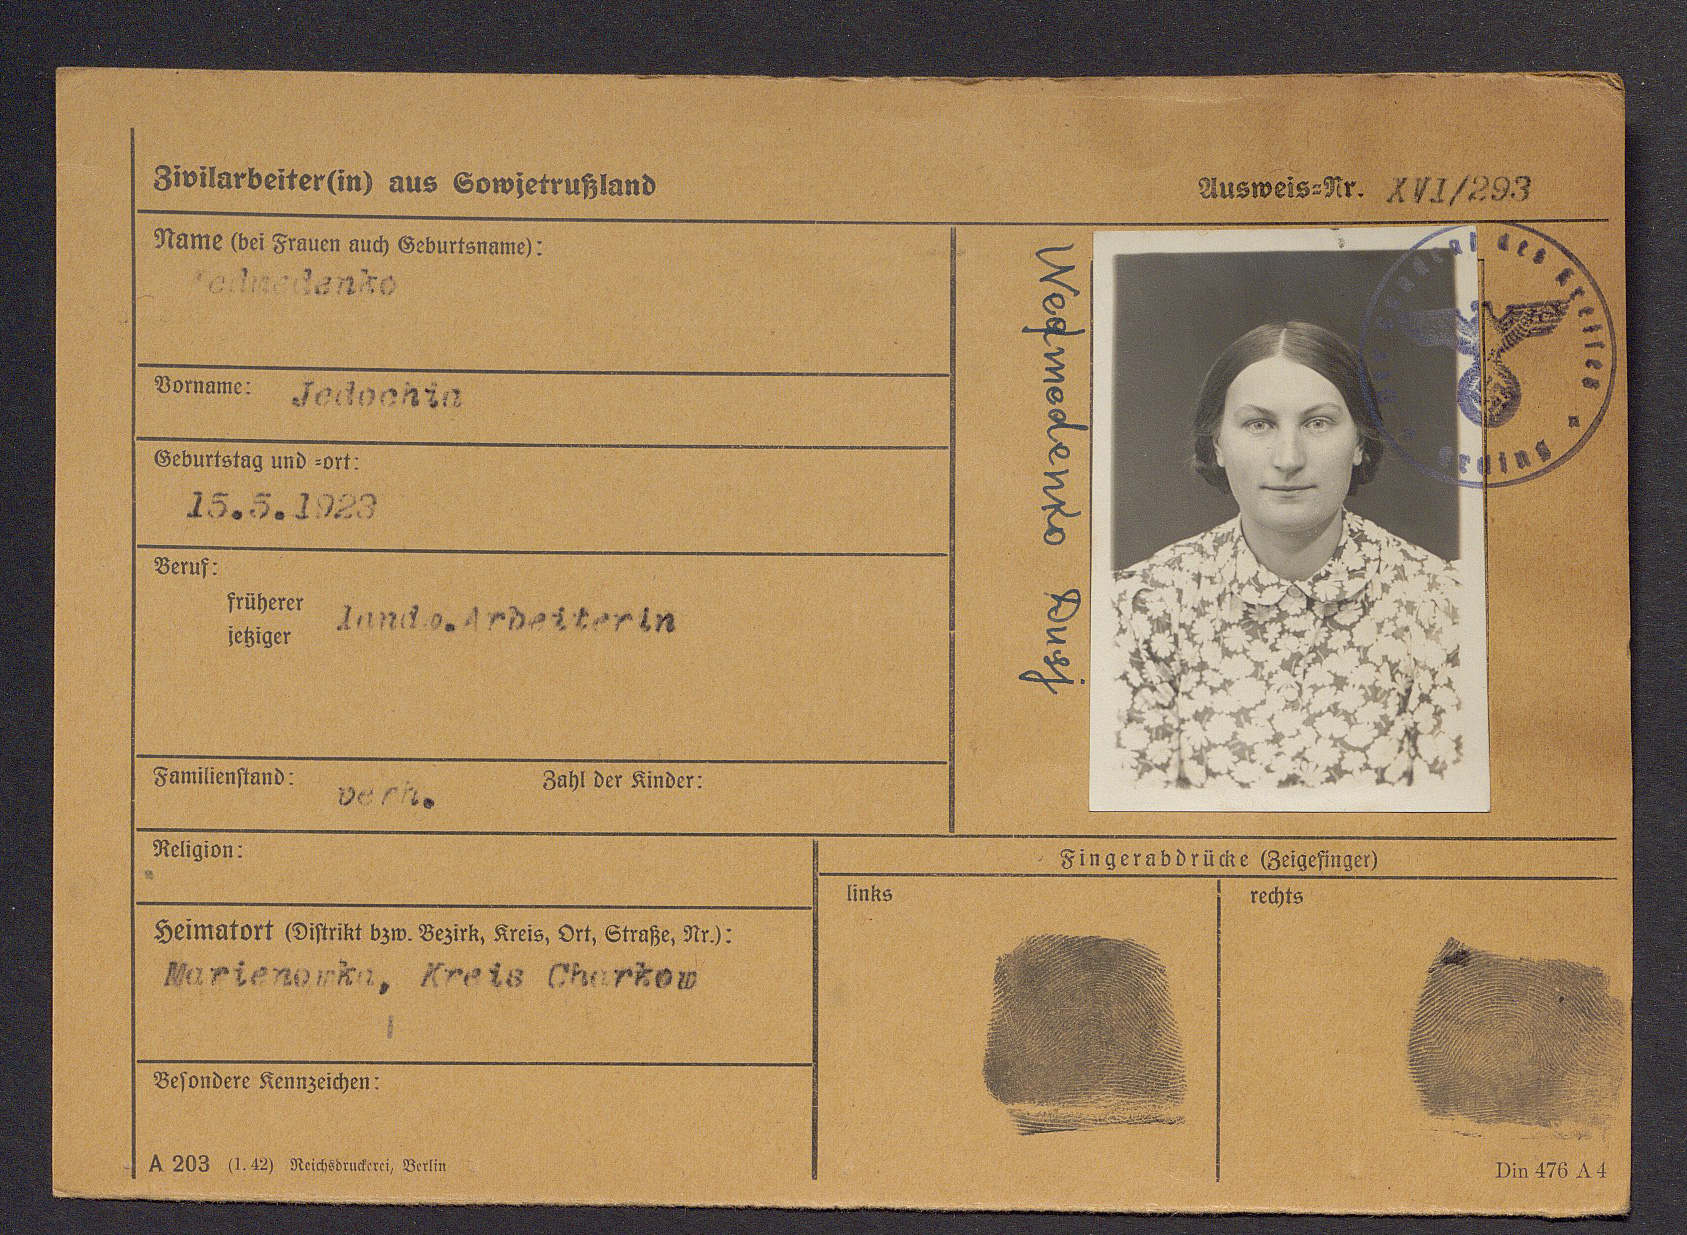 Zivilarbeiter(in) aus Sowjetrußland
Ausweis=Nr. XVI/293
Name (bei Frauen auch Geburtsname):
Wedmedenko Dusj
Vorname: Jedochia
Geburtstag und =ort:
15.5.1923
Beruf:
früherer
jetziger
landw.Arbeiterin
Familienstand: verh. Zahl der Kinder:
Religion:
Fingerabdrücke (Zeigefinger)
links rechts
Heimatort (Distrikt bzw. Bezirk, Kreis, Ort, Straße, Nr.):
Marienowka, Kreis Charkow
Besondere Kennzeichen:
A 203 (1. 42) Reichsdruckerei, Berlin
Din 476 A 4
des Kreises
Erding